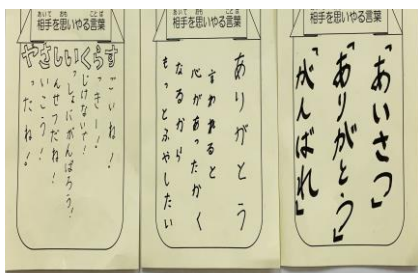 相手を思いやる言葉
やさしいくらす
ごいね!
っきー!
じけないで!
っしょにがんばろう!
んせつだね!
いこう!
ったね!
相手を思いやる言葉
ありがとう
言われると
心があったかく
なるから
もっとふやしたい
相手を思いやる言葉
「あいさつ」
「ありがとう」
「がんばれ」